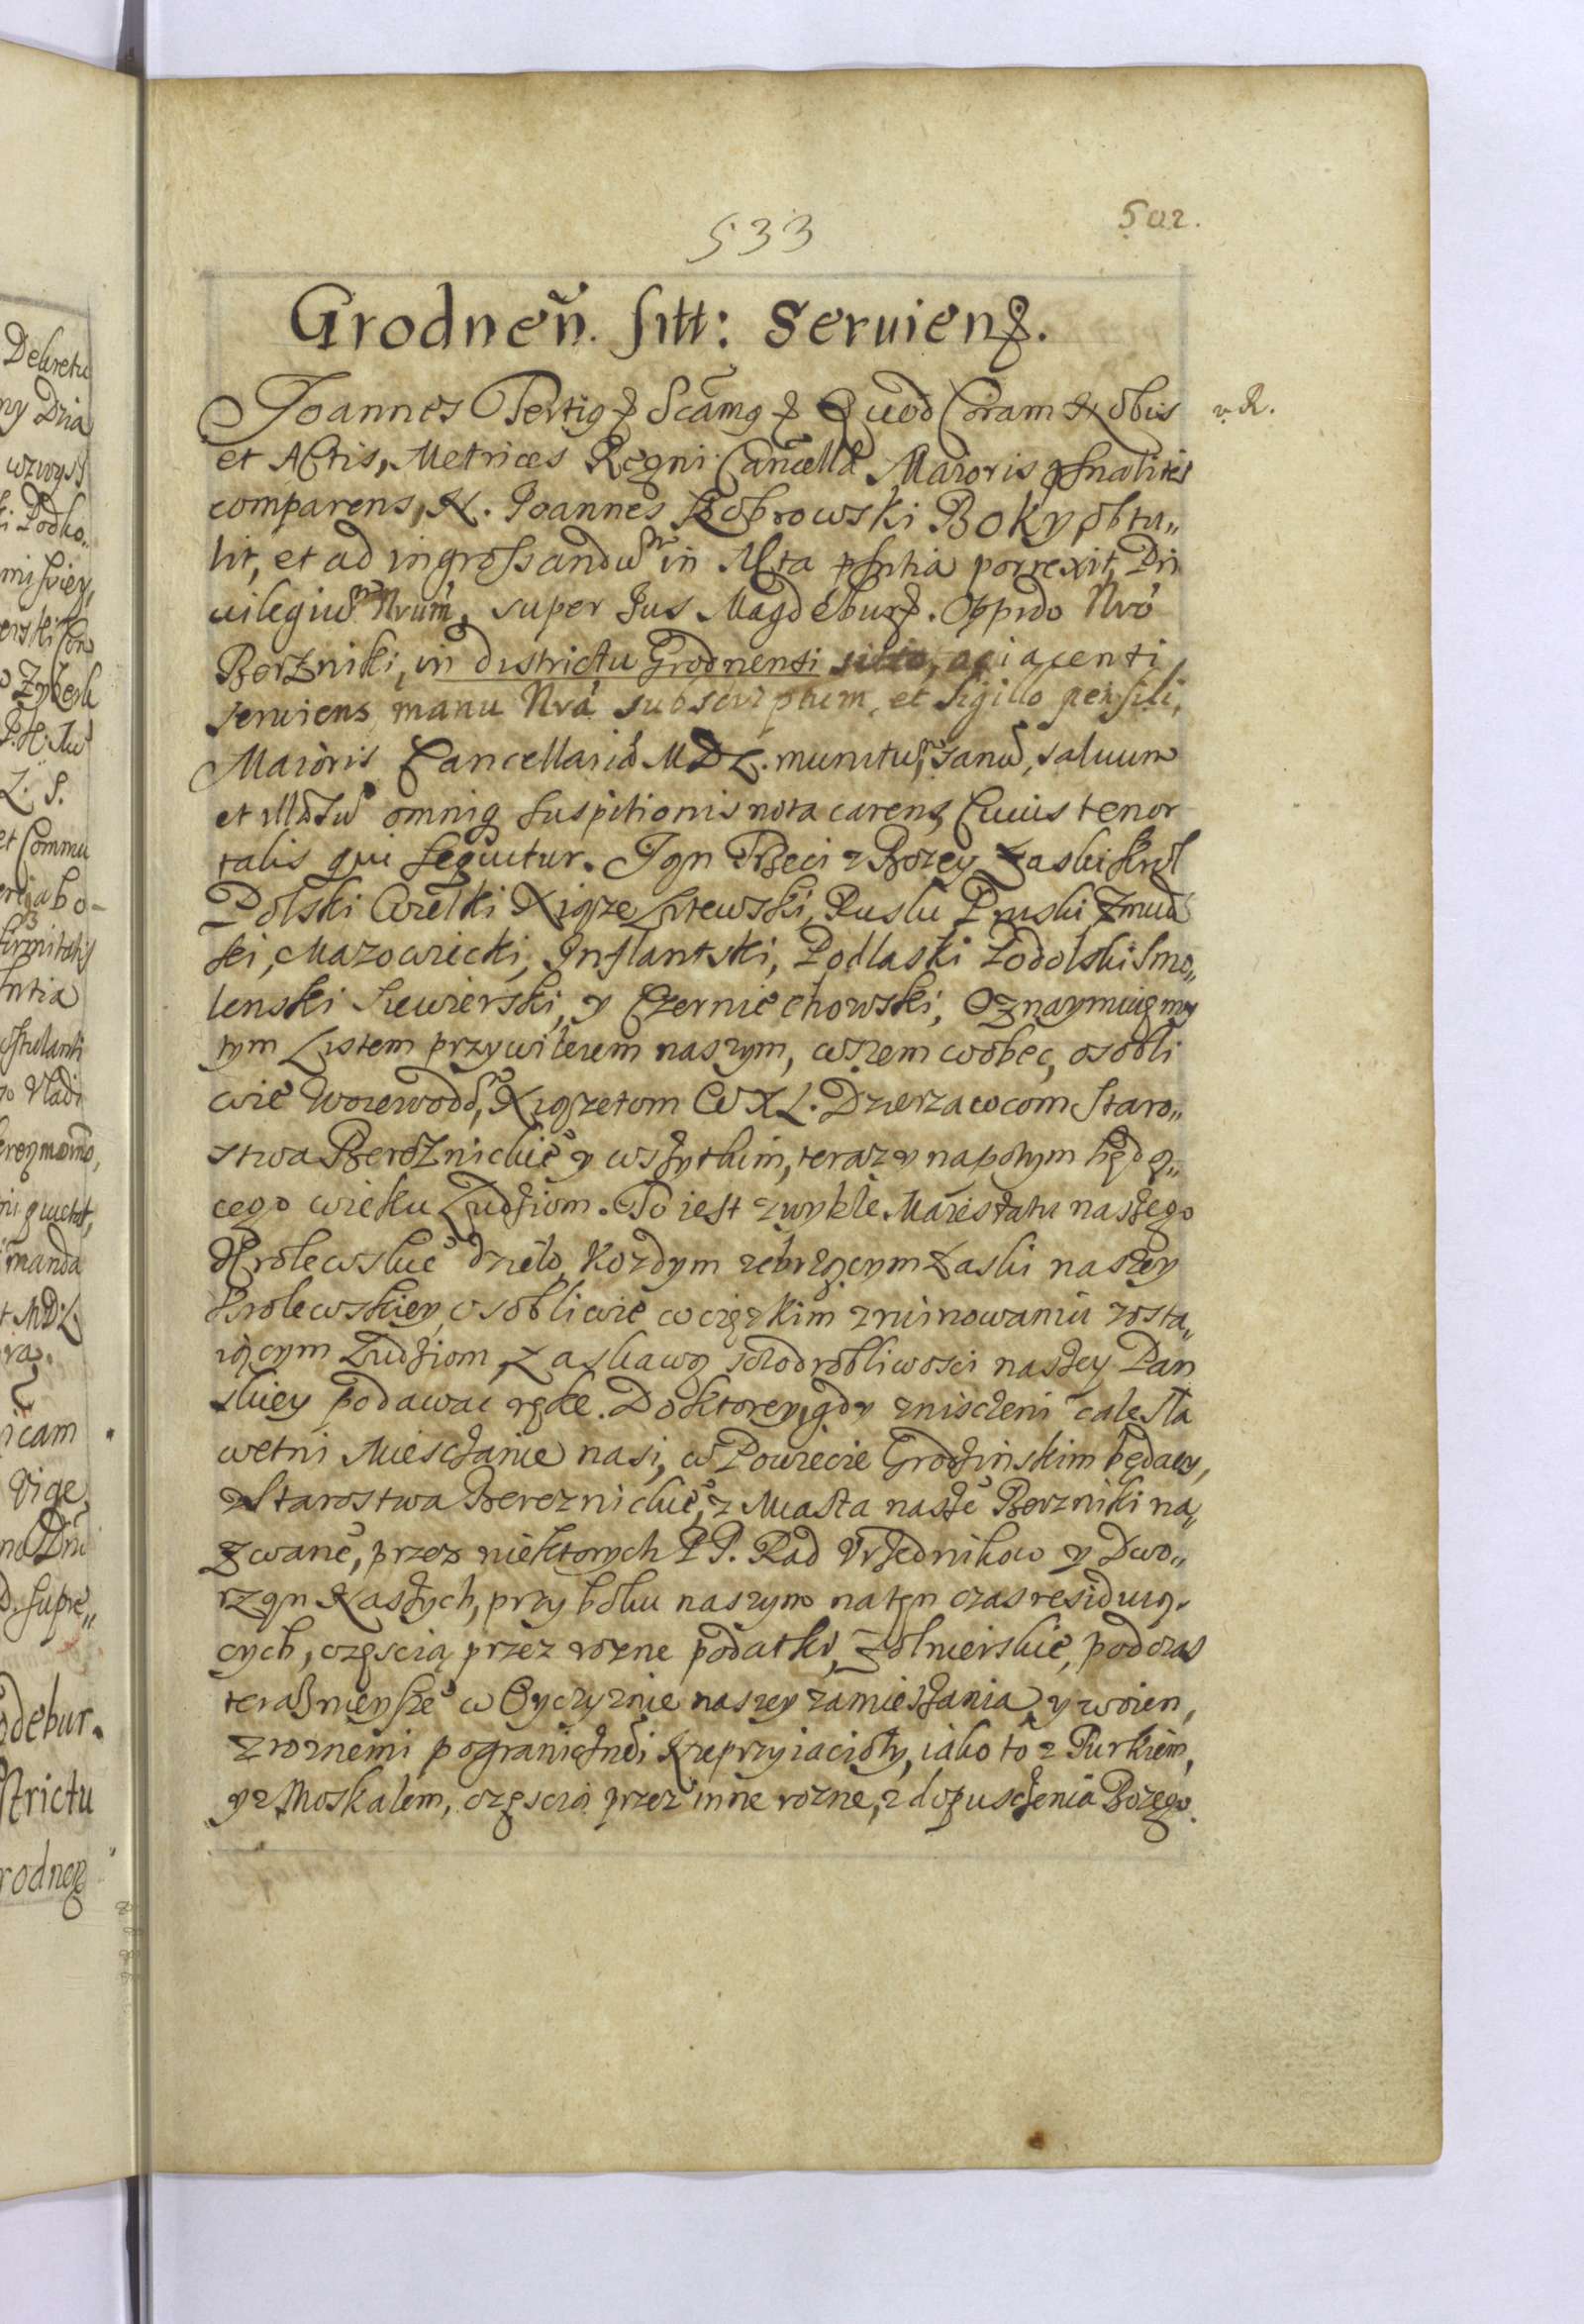 533
502.
Grodneñ. sitt: Seruienꝭ.
Joannes Tertiꝯ ꝛ Scamꝯ ꝛ Quod Coram Nobis
v. R.
et Actis, Metrices Regni Cancellã Maioris psnaliter
comparens, N. Joannes Bobrowski Boky, obtu„
lit, et ad ingrossandũ in Acta psntia porrexit, Pri
uilegiũ Nrum, super Jus Magdeburg. Oppido Nrõ
Berzniki, in districtu Grodnensi sitto, adiacenti
seruiens manu Nrã subscriptum, et sigillo pensili,
Maioris Cancellariæ MDL. munitũ, sanũ, saluum
et illæsũ omniq suspitionis nota carens, Cuius tenor
talis qui sequitur. Jan Trzeci z Bozey Łaski Krol
Polski Wielki Xiąze Litewski, Ruski Pruski Zmudz
ki, Mazowiecki, Inflantski, Podlaski Podolski Smo„
lenski Siewierski, y Czerniechowski, Oznaymuiemy
tym Listem przywileiem naszym, wszem wobec, osobli
wie Woiewodõ, Xiązetom WXL. Dzierzawcom Staro„
stwa Bereznickiẽ y wszytkim, teraz y napotym będą„
cego wieku Ludziom. To iest zwykle Maiestatu naszego
Krolewskiẽ dzieło, Kozdym zebrzącym Łaski naszey
Krolewskiey, osobliwie w cięzkim zruinowaniu zosta„
iącym Ludziom, Łaskawą szczodrobliwosci naszey Pan
skiey podawac rękę. Do ktorey, gdy zniszczeni cale sła
wetni Miesczanie nasi, w Powiecie Grodzinskim będacy,
z Starostwa Bereznickiẽ, z Miasta naszẽ Berzniki na„
zwanẽ, przez niektorych PP. Rad Vrzednikow y Dwo„
rzan Naszych, przy boku naszym na ten czas residuią„
cych, częscią przez rozne podatki, Zołnierskie, podczas
teraznieyszẽ w Oyczyznie naszey zamieszania, y woien,
z roznemi pogranicznẽi Nieprzyiacioły, iako to z Turkiem,
y z Moskalem, częscią przez inne rozne, z dopusczenia Bozego